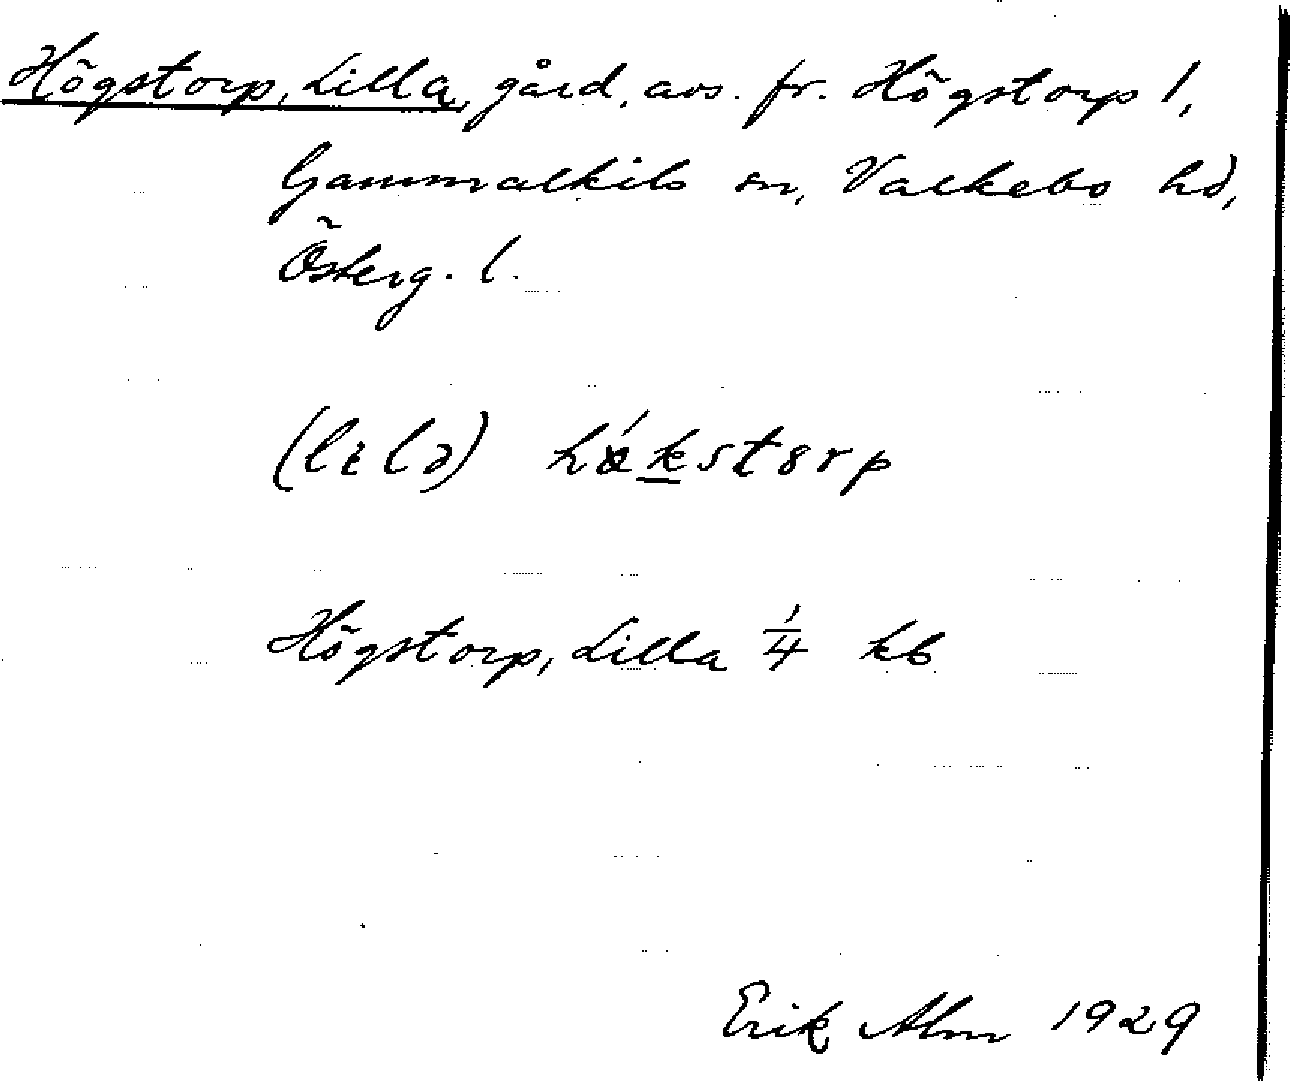 Högstorp, Lilla, gård, avs. fr. Högstorp 1,
Gammalkils sn, Valkebo hd,
Österg. l.
(lılə) hǿkstørp
Högstorp, Lilla 1/4 kb
Erik Alm 1929